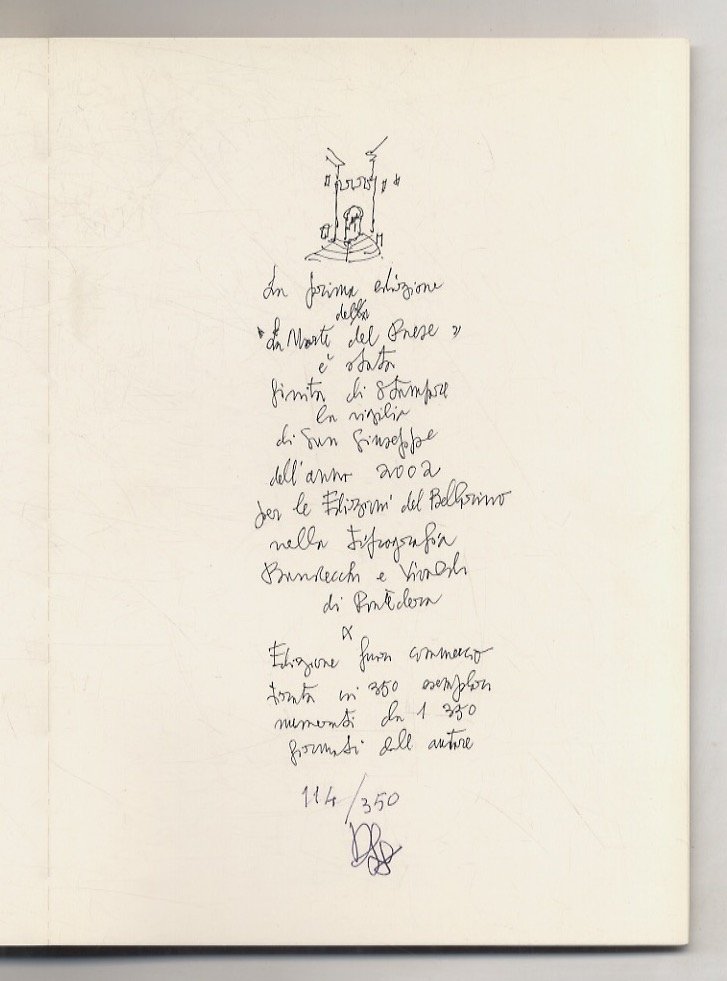 La prima edizione
della
"La Morte del Paese"
è stata
finita di stampare
la vigilia
di San Giuseppe
dell'anno 2002
per le Edizioni del Bellorino
nella Tipografia
Bandecchi e Vivaldi
di Pontedera
Edizione fuori commercio
tirata in 350 esemplari
numerati da 1 350
firmati dall autore
114/350